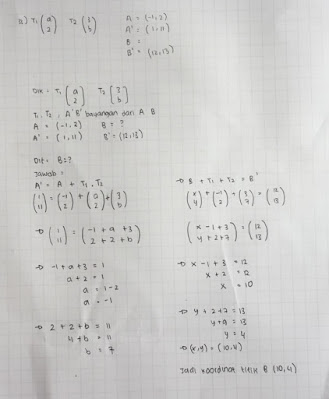 12) T₁ (a 2) T₂ (3 b) A = (-1,2)
A' = (1,11)
B =
B' = (12,13)
Dik = T₁ (a 2) T₂ (3 b)
T₁, T₂, A'B' bayangan dari A B
A = (-1,2) B = ?
A' = (1,11) B' = (12,13)
Dit = B = ?
Jawab =
A' = A + T₁, T₂
(1 11) = (-1 2) + (a 2) + (3 b)
→ (1 11) = (-1 + a + 3 2 + 2 + b)
→ -1 + a + 3 = 1
a + 2 = 1
a = 1 - 2
a = -1
→ 2 + 2 + b = 11
4 + b = 11
b = 7
→ B + T₁ + T₂ = B'
(x y) + (-1 2) + (3 7) = (12 13)
(x - 1 + 3 y + 2 + 7) = (12 13)
→ x - 1 + 3 = 12
x + 2 = 12
x = 10
→ y + 2 + 7 = 13
y + 9 = 13
y = 4
→ (x,y) = (10,4)
Jadi koordinat titik B (10,4)